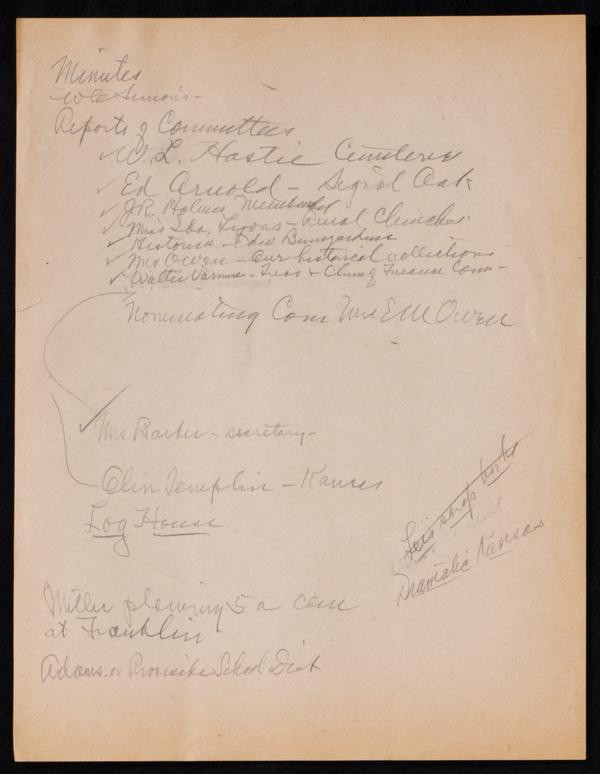 Minutes
W C Simons -
Reports of Committees
W. L. Hastie Cemeteries
Ed Arnold - Signal Oak
J.R. Holmes Membership
Miss Ida Lyons - Rural Churches
Historian - Edw Bumgardner
Mrs Owen - Our historical collections
Walter Varnum - Treas & Chm of Finance Com -
Nominating Com Mrs E M Owen
Mrs Barker - secretary -
Olin Templin - Kansas
Log House
Lois scrap books
Dramatic Kansas
Miller plowing 5 a cem
at Franklin
Adams or Riverside School Dist